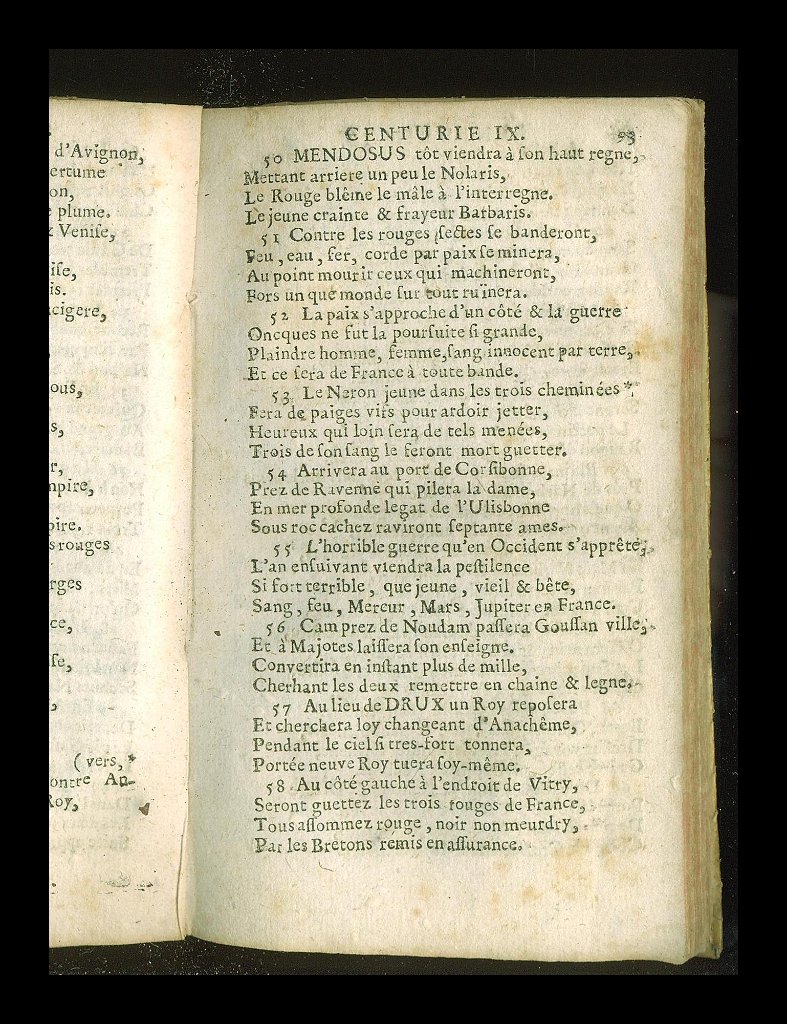 d'Avignon,
ertume
on,
plume.
Veniſe,
iſe,
is.
cigere,
ous,
s,
r,
mpire,
pire.
s rouges
rges
ce,
ſe,
(vers,
ontre An-
Roy,
CENTURIE IX. 93
50 MENDOSUS tôt viendra à ſon haut regne,
Mettant arriere un peu le Nolaris,
Le Rouge blême le mâle à l'interregne.
Le jeune crainte & frayeur Barbaris.
51 Contre les rouges ſectes ſe banderont,
Feu, eau, fer, corde par paix ſe minera,
Au point mourir ceux qui machineront,
Fors un que monde ſur tout ruïnera.
52 La paix s'approche d'un côté & la guerre
Oncques ne fut la pourſuite ſi grande,
Plaindre homme, femme, ſang innocent par terre,
Et ce ſera de France à toute bande.
53 Le Neron jeune dans les trois cheminées
Fera de paiges vifs pour ardoir jetter,
Heureux qui loin ſera de tels menées,
Trois de ſon ſang le feront mort guetter.
54 Arrivera au port de Corſibonne,
Prez de Ravenne qui pilera la dame,
En mer profonde legat de l'Uliſbonne
Sous roc cachez raviront ſeptante ames.
55 L'horrible guerre qu'en Occident s'apprête,
L'an enſuivant viendra la peſtilence
Si fort terrible, que jeune, vieil & bête,
Sang, feu, Mercur, Mars, Jupiter en France.
56 Cam prez de Noudam paſſera Gouſſan ville,
Et à Majotes laiſſera ſon enſeigne.
Convertira en inſtant plus de mille,
Cherhant les deux remettre en chaine & legne.
57 Au lieu de DRUX un Roy repoſera
Et cherchera loy changeant d'Anachême,
Pendant le ciel ſi tres-fort tonnera,
Portée neuve Roy tuera ſoy-même.
58 Au côté gauche à l'endroit de Vitry,
Seront guettez les trois rouges de France,
Tous aſſommez rouge, noir non meurdry,
Par les Bretons remis en aſſurance.